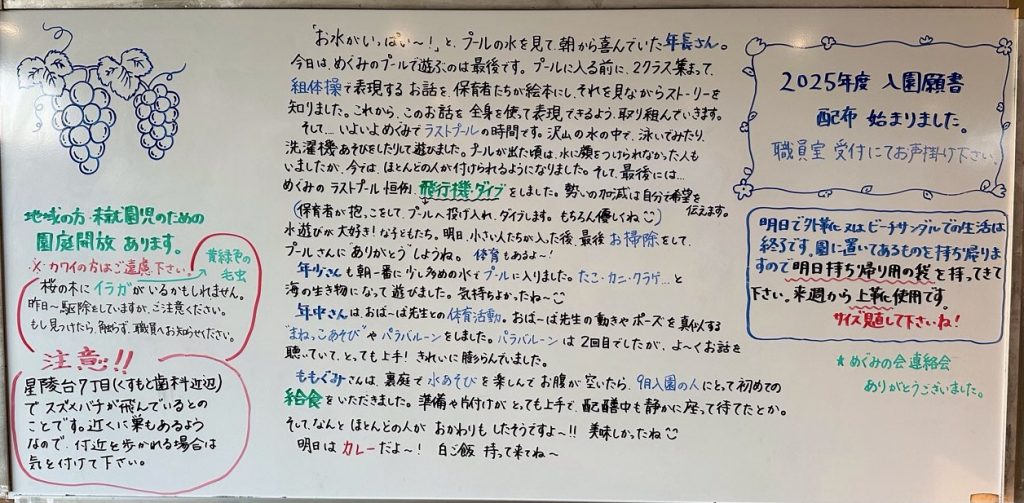 地域の方・未就園児のための
園庭開放 あります。
※カワイの方はご遠慮下さい。
黄緑色の
毛虫
桜の木にイラガがいるかもしれません。
昨日〜駆除をしていますが、ご注意ください。
もし見つけたら、触らず、職員へお知らせください。
注意!!
星陵台7丁目(くすもと歯科近辺)
で スズメバチが飛んでいるとの
ことです。近くに巣もあるよう
なので、付近を歩かれる場合は
気を付けて下さい。
「お水がいっぱい〜!」と、プールの水を見て、朝から喜んでいた年長さん。
今日は、めぐみのプールで遊ぶのは最後です。プールに入る前に、2クラス集まって、
組体操で表現する お話を、保育者たちが絵本にし、それを見ながらストーリーを
知りました。これから、このお話を 全身を使って表現できるよう、取り組んでいきます。
そして…いよいよめぐみで ラストプールの時間です。沢山の水の中で、泳いでみたり、
洗濯機あそびをしたりして遊びました。プールが出た頃は、水に顔をつけられなかった人も
いましたが、今では、ほとんどの人が付けられるようになりました。そして、最後には…
めぐみの ラストプール恒例、飛行機ダイブをしました。勢いの加減は自分で希望を
伝えます。
(保育者が抱っこをして、プールへ投げ入れ、ダイブします。もちろん優しくね
水遊びが大好き!な子どもたち。明日、小さい人たちが入った後、最後 お掃除をして、
プールさんに“ありがとう”しようね。 体育もあるよ〜!
年少さんも朝一番に少し多めの水でプールに入りました。たこ・カニ・クラゲ…と
海の生き物になって遊びました。気持ちよかったね〜
年中さんは、おばーば先生との体育活動。おばーば先生の動きやポーズを真似する
“まねっこあそび”や パラバルーンをしました。パラバルーンは2回目でしたが、よ〜くお話を
聴いていて、とっても上手! きれいに膨らんでいました。
ももぐみさんは、裏庭で 水あそびを楽しんでお腹が空いたら、9月入園の人にとって初めての
給食をいただきました。準備や片付けが とっても上手で、配膳中も静かに座って待てたとか。
そして、なんと ほとんどの人が おかわりも したそうですよ〜!! 美味しかったね
明日は カレーだよ〜! 白ご飯 持って来てね〜
2025年度 入園願書
配布 始まりました。
職員室 受付にてお声掛け下さい。
明日で外靴に又は ビーチサンダルでの生活は
終了です。園に置いてあるものを持ち帰りま
すので明日持ち帰り用の袋を持ってきて
下さい。来週から上靴に使用です。
サイズ見直して下さいね!
★めぐみの会 連絡会
ありがとうございました。